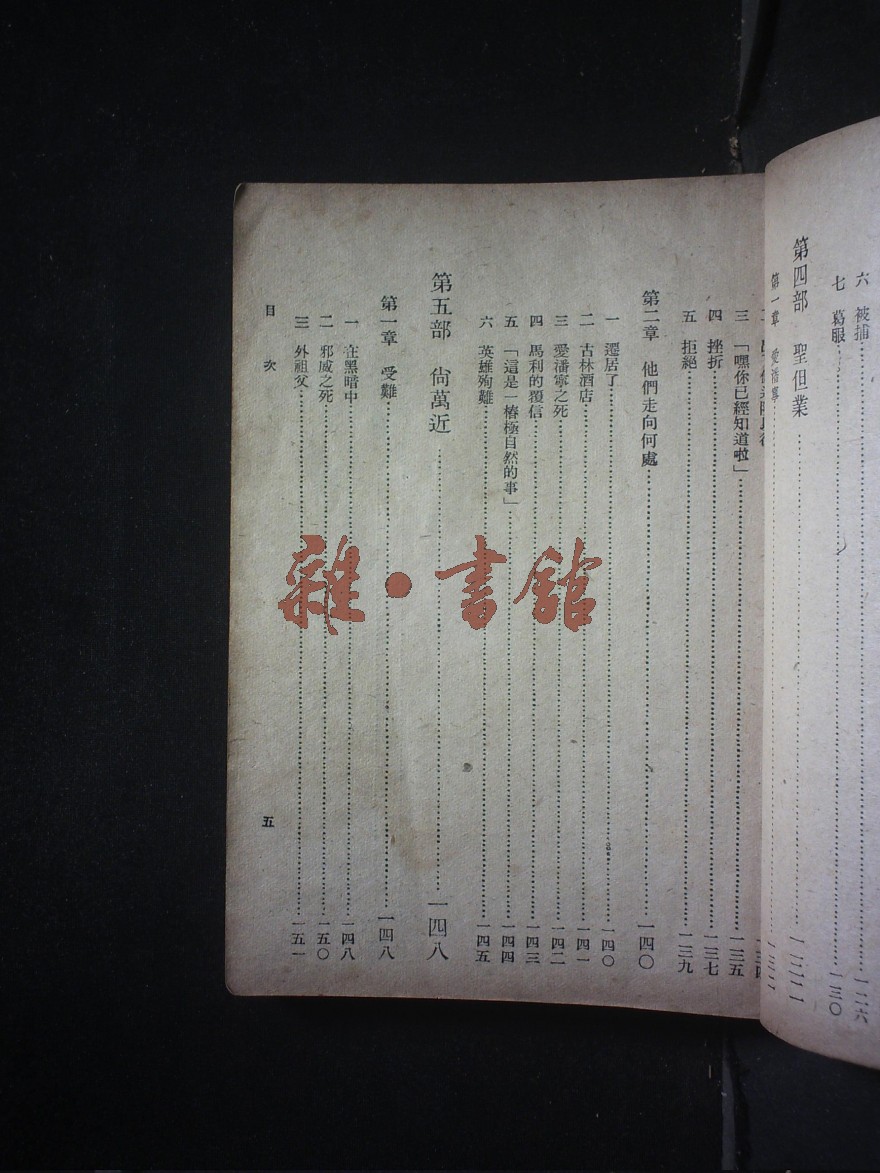 六 被捕 一二六
七 葛服 一三〇
第四部 聖但業
第一章 愛潘寧
三 「嘿你已經知道啦」 一三五
四 挫折 一三七
五 拒絕 一三九
第二章 他們走向何處 一四〇
一 遷居了 一四〇
二 古林酒店 一四一
三 愛潘寧之死 一四二
四 馬利的覆信 一四三
五 「這是一樁極自然的事」 一四四
六 英雄殉難 一四五
第五部 尙萬近 一四八
第一章 受難 一四八
一 在黑暗中 一四八
二 邪威之死 一五〇
三 外祖父 一五一
目次 五
雜·書館